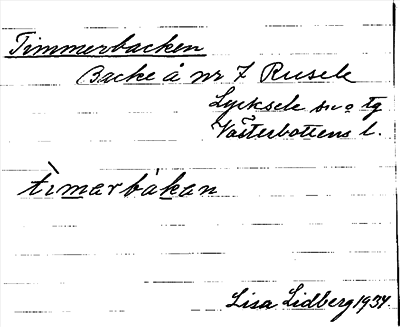 Timmerbacken
Backe å nr 7 Rusele
Lycksele sn o tg
Västerbottens l.
tìmarbàkan
Lisa Lidberg 1934.